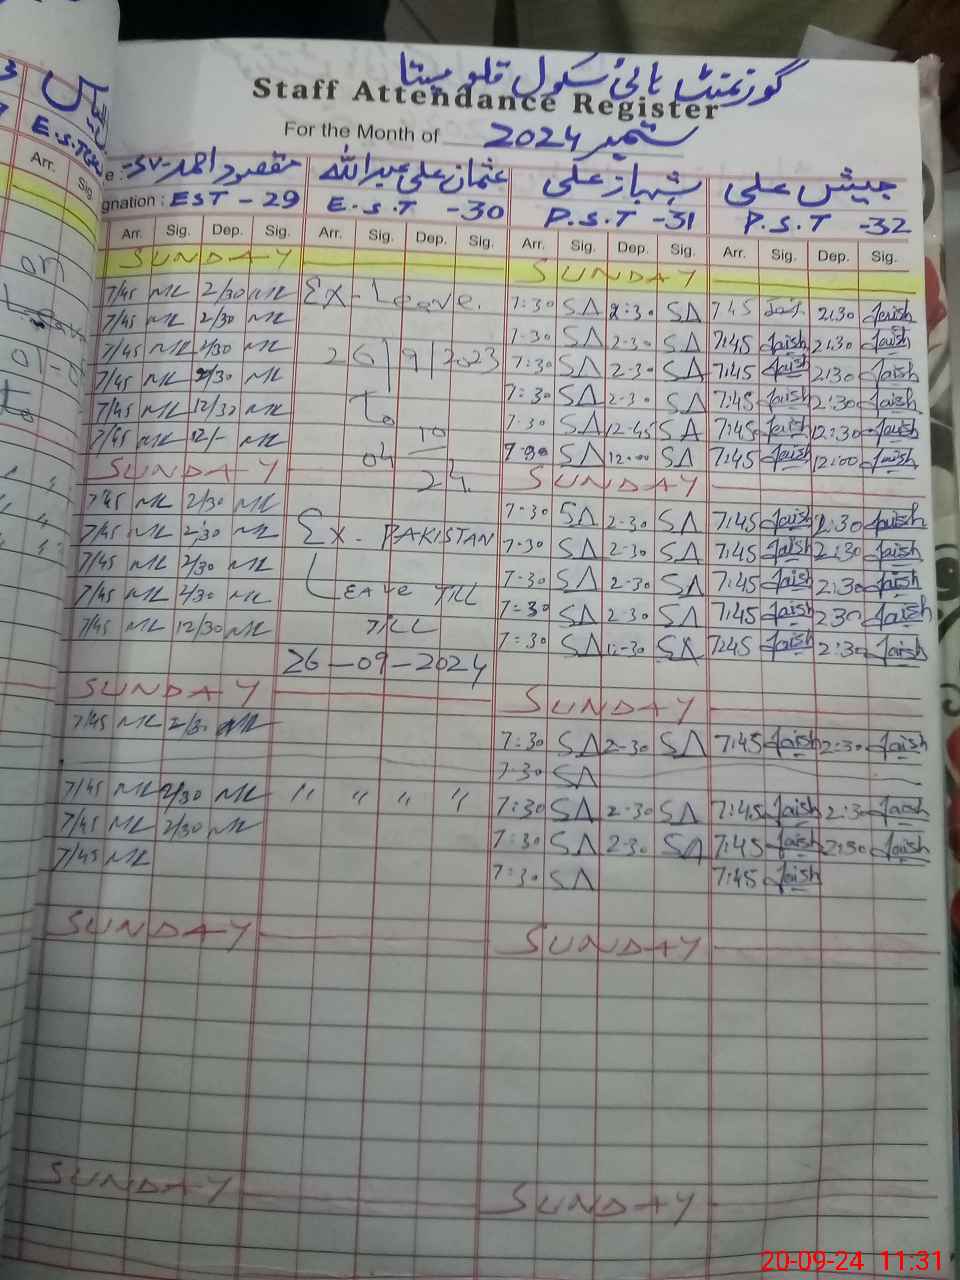 گورنمنٹ ہائی سکول قلو مینا
Staff Attendance Register
For the Month of ستمبر 2024
مقصود احمد -SV- عثمان علی عبداللہ شہباز علی جیش علی
E.S.T
gnation : EST - 29 E.S.T -30 P.S.T -31 P.S.T -32
Arr. Sig. Arr. Sig. Dep. Sig. Arr. Sig. Dep. Sig. Arr. Sig. Dep. Sig. Arr. Sig. Dep. Sig.
SUNDAY SUNDAY
7/45 ML 2/30 ML Ex-Leave. 7:30 SA 2:30 SA 7:45 Jaish 2:30 Jaish
7/45 ML 2/30 ML 7-30 SA 2-30 SA 7:45 Jaish 2:30 Jaish
7/45 ML 2/30 ML 26/9/2023 7:30 SA 2-30 SA 7:45 Jaish 2:30 Jaish
7/45 ML 2/30 ML 7:30 SA 2-30 SA 7:45 Jaish 2:30 Jaish
7/45 ML 12/30 ML To 7:30 SA 12-45 SA 7:45 Jaish 12:30 Jaish
7/45 ML 12/- ML 04 10 7-30 SA 12-00 SA 7:45 Jaish 12:00 Jaish
SUNDAY 24 SUNDAY
7/45 ML 2/30 ML 7-30 SA 2-30 SA 7:45 Jaish 2:30 Jaish
7/45 ML 2/30 ML Ex- PAKISTAN 7-30 SA 2-30 SA 7:45 Jaish 2:30 Jaish
7/45 ML 2/30 ML 7-30 SA 2-30 SA 7:45 Jaish 2:30 Jaish
7/45 ML 2/30 ML Leave TILL 7:30 SA 2-30 SA 7:45 Jaish 2:30 Jaish
7/45 ML 12/30 ML TILL 7:30 SA 12-30 SA 7:45 Jaish 2:30 Jaish
26-09-2024
SUNDAY SUNDAY
7/45 ML 2/30 ML 7:30 SA 2-30 SA 7:45 Jaish 2:30 Jaish
7-30 SA
7/45 ML 2/30 ML " " " " 7:30 SA 2-30 SA 7:45 Jaish 2:30 Jaish
7/45 ML 2/30 ML 7:30 SA 2-30 SA 7:45 Jaish 2:30 Jaish
7/45 ML 7:30 SA 7:45 Jaish
SUNDAY SUNDAY
SUNDAY SUNDAY
20-09-24 11:31